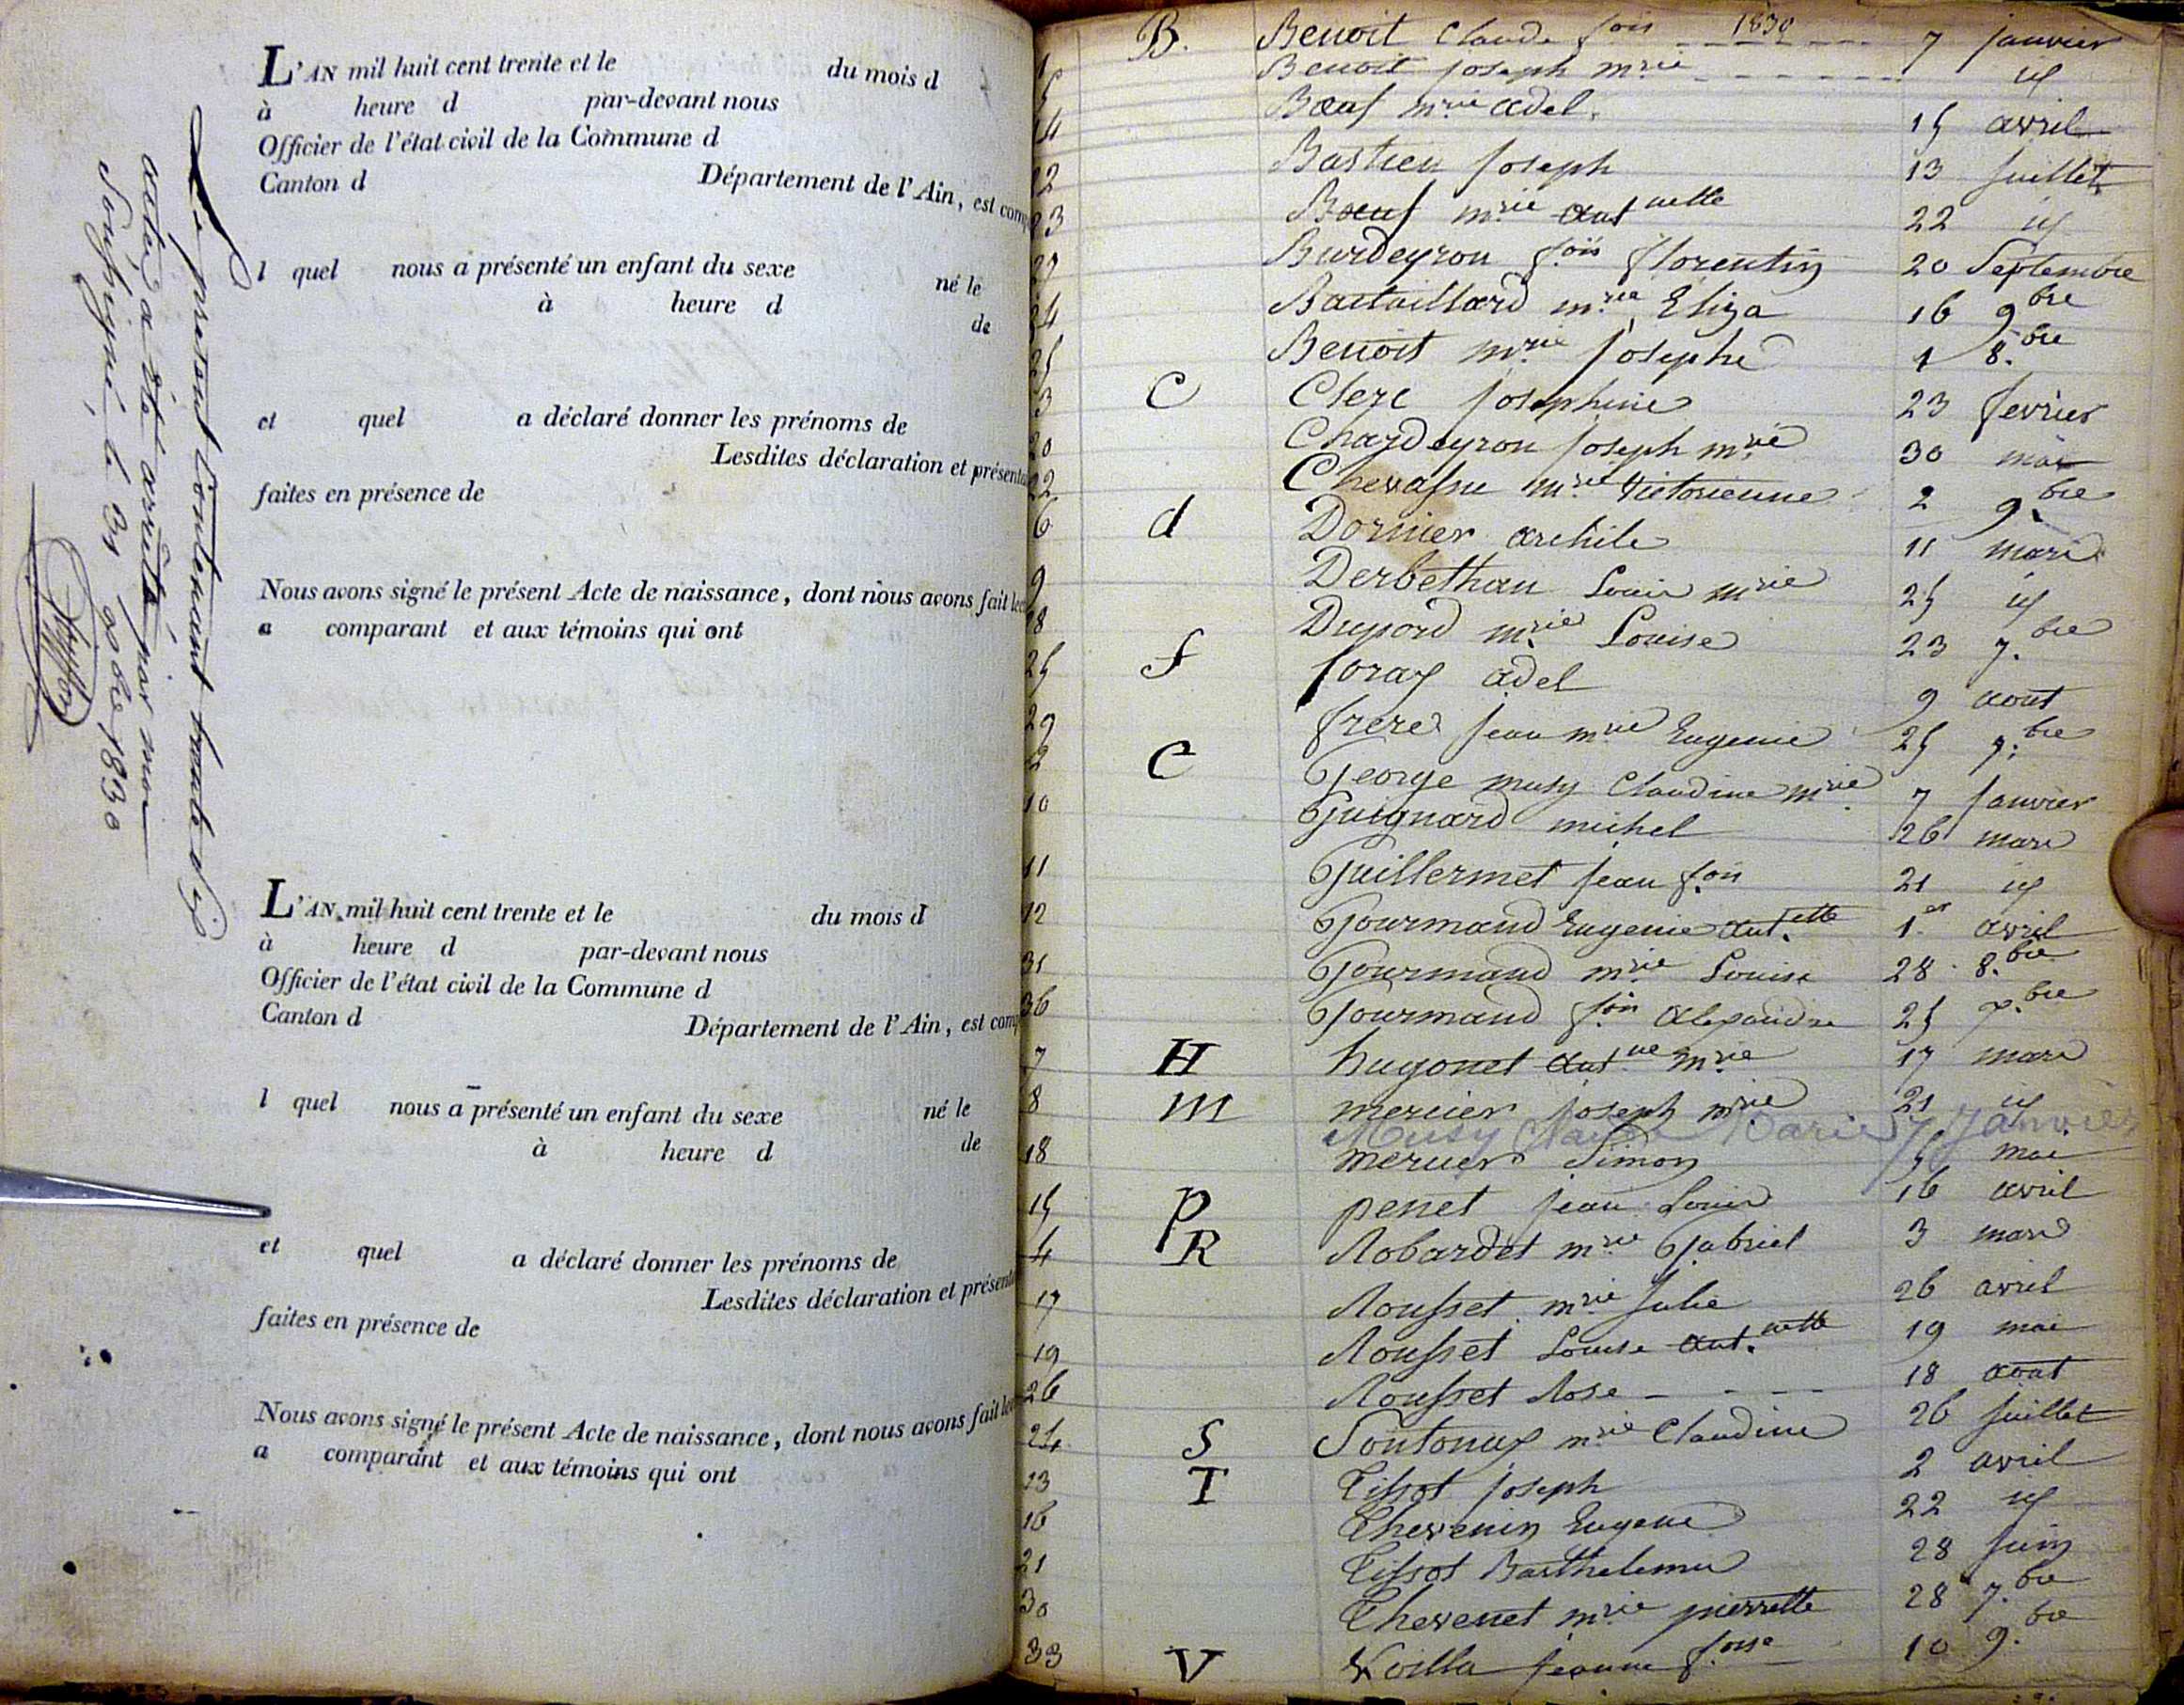 Le présent contenant trente six
actes, a été arrêté par moi
soussigné le 31 Xbre 1830
L'AN mil huit cent trente et le du mois d
à heure d par-devant nous
Officier de l'état civil de la Commune d
Canton d Département de l'Ain, est comp
l quel nous a présenté un enfant du sexe né le
à heure d de
et quel a déclaré donner les prénoms de
Lesdites déclaration et présenta
faites en présence de
Nous avons signé le présent Acte de naissance, dont nous avons fait lec
a comparant et aux témoins qui ont
L'AN mil huit cent trente et le du mois d
à heure d par-devant nous
Officier de l'état civil de la Commune d
Canton d Département de l'Ain, est comp
l quel nous a présenté un enfant du sexe né le
à heure d de
et quel a déclaré donner les prénoms de
Lesdites déclaration et présenta
faites en présence de
Nous avons signé le présent Acte de naissance, dont nous avons fait lec
a comparant et aux témoins qui ont
1830
1 B. Benoit Claude fois 7 janvier
5 Benoit joseph mrie id
14 Bœuf mrie adel. 15 avril
22 Bastien joseph 13 juillet
23 Bœuf mrie antnette 22 id
27 Burdeyron fois florentin 20 Septembre
34 Bataillard mrie Eliza 16 9bre
25 Benoit mrie josephe 1 8.bre
3 C Clerc josephine 23 fevrier
20 Chardeyron joseph mrie 30 mai
22 Chevassu mrie Victorienne 2 9.bre
6 d Dornier archile 11 mars
9 Derbethan Louis mrie 25 id
28 Dupard mrie Louise 23 7.bre
25 f foray adel 9 aout
29 frere jean mrie Eugenie 25 7.bre
2 G George musy Claudine mrie 7 janvier
10 Guignard michel 26 mars
11 Guillermet jean fois 21 id
12 Gourmand Eugenie ant.ette 1er avril
31 Gourmand mrie Louise 28 8.bre
36 Gourmand fois alexandre 25 X.bre
7 H hugonet antne mrie 17 mars
8 m mercier joseph mrie 21 id
Musy Claudine Marie 7 Janvier
18 mercier Simon 5 mai
15 p penet jean Louis 16 avril
4 R Robardet mrie Gabriel 3 mars
17 Rousset mrie Julie 26 avril
19 Rousset Louise ant.nette 19 mai
26 Rousset Rose 18 aout
24 S Sontonax mrie Claudine 26 juillet
13 T Tissot joseph 2 avril
16 Thevenin Eugene 22 id
21 Tissot Barthelemie 28 juin
30 Thevenet mrie pierrette 28 7.bre
33 V Voilla jeanne foise 10 9.bre